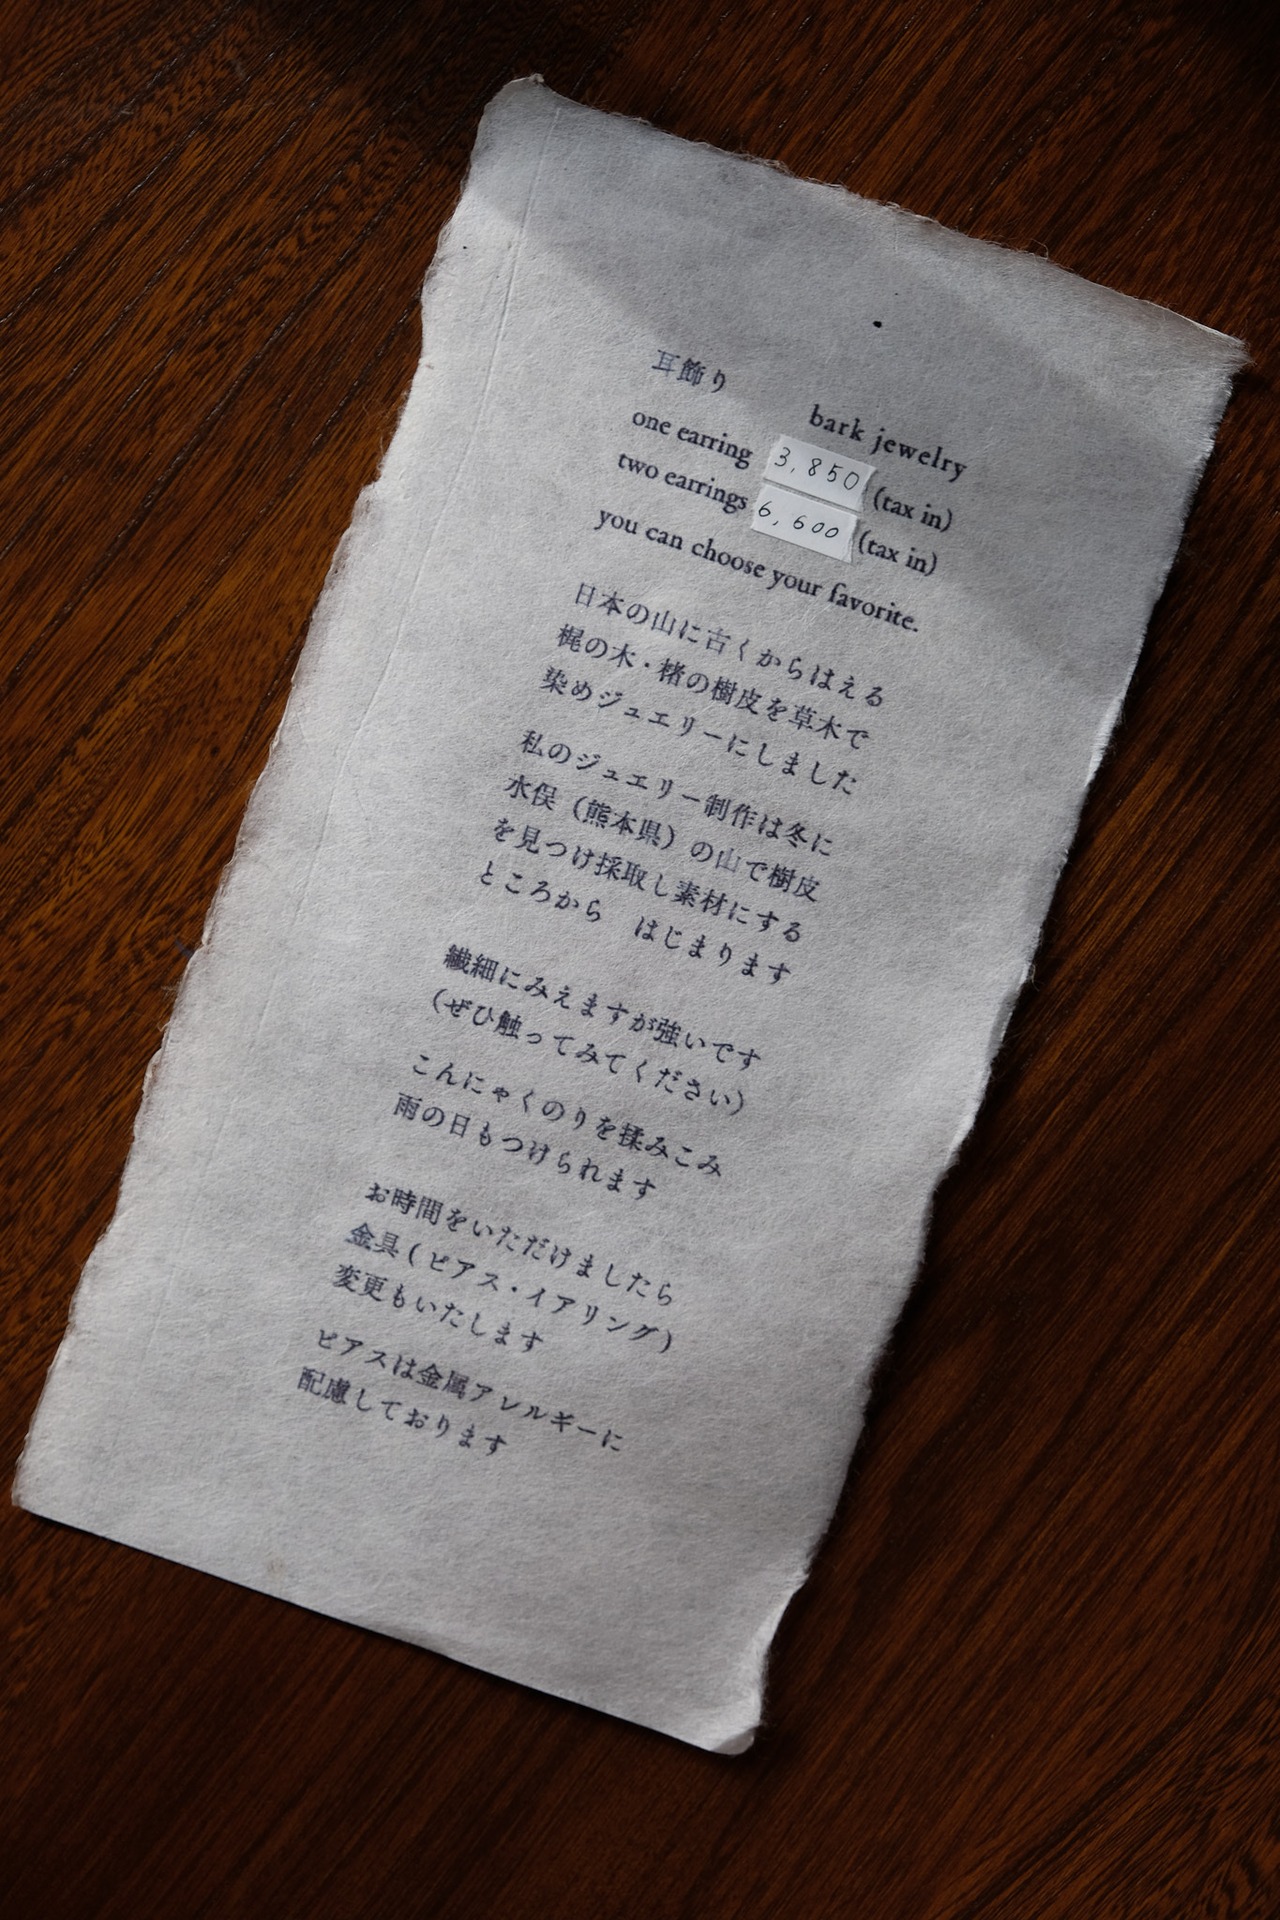 耳飾り
bark jewelry
one earring 3,850 (tax in)
two earrings 6,600 (tax in)
you can choose your favorite.
日本の山に古くからはえる
梶の木・楮の樹皮を草木で
染めジュエリーにしました
私のジュエリー制作は冬に
水俣（熊本県）の山で樹皮
を見つけ採取し素材にする
ところから　はじまります
繊細にみえますが強いです
（ぜひ触ってみてください）
こんにゃくのりを揉みこみ
雨の日もつけられます
お時間をいただけましたら
金具(ピアス・イアリング)
変更もいたします
ピアスは金属アレルギーに
配慮しております